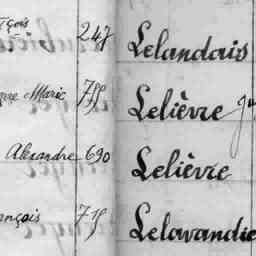 çois 247 Lelandais
Marie 755 Lelièvre
Alexandre 690 Lelièvre
ançois 715 Lelavandie